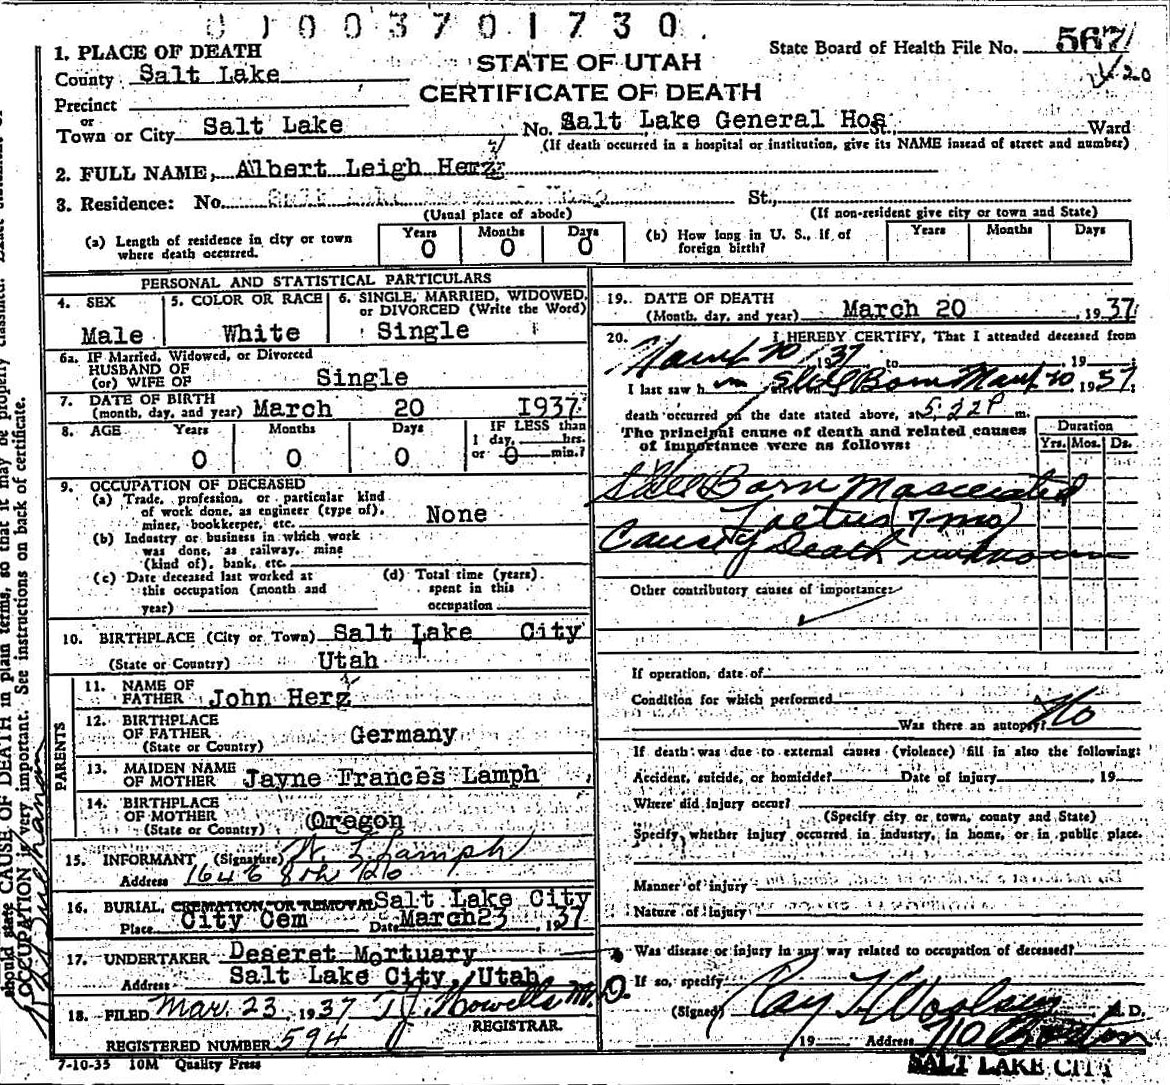 01003701730
1. PLACE OF DEATH
State Board of Health File No. 567
County Salt Lake
STATE OF UTAH
20
Precinct
CERTIFICATE OF DEATH
or
Town or City Salt Lake No. Salt Lake General Hos St., Ward
(If death occurred in a hospital or institution, give its NAME instead of street and number)
2. FULL NAME, Albert Leigh Herz
3. Residence: No. St.,
(Usual place of abode) (If non-resident give city or town and State)
(a) Length of residence in city or town where death occurred. Years 0 Months 0 Days 0
(b) How long in U. S., if of foreign birth? Years Months Days
PERSONAL AND STATISTICAL PARTICULARS
4. SEX 5. COLOR OR RACE 6. SINGLE, MARRIED, WIDOWED, or DIVORCED (Write the Word)
Male White Single
6a. IF Married, Widowed, or Divorced
HUSBAND OF
(or) WIFE OF Single
7. DATE OF BIRTH
(month, day, and year) March 20 1937
8. AGE Years Months Days IF LESS than
1 day, hrs.
0 0 0 or 0 min.?
9. OCCUPATION OF DECEASED
(a) Trade, profession, or particular kind
of work done, as engineer (type of),
miner, bookkeeper, etc. None
(b) Industry or business in which work
was done, as railway, mine
(kind of), bank, etc.
(c) Date deceased last worked at
this occupation (month and
year)
(d) Total time (years)
spent in this
occupation
10. BIRTHPLACE (City or Town) Salt Lake City
(State or Country) Utah
PARENTS
11. NAME OF
FATHER John Herz
12. BIRTHPLACE
OF FATHER Germany
(State or Country)
13. MAIDEN NAME
OF MOTHER Jayne Frances Lamph
14. BIRTHPLACE
OF MOTHER Oregon
(State or Country)
15. INFORMANT (Signature) Lamph
Address 164 E 8th
16. BURIAL, CREMATION OR REMOVAL Salt Lake City
Place City Cem Date March 23, 1937
17. UNDERTAKER Deseret Mortuary
Address Salt Lake City, Utah
18. FILED Mar. 23, 1937 T J Howells M.D.
REGISTRAR.
REGISTERED NUMBER 594
7-10-35 10M Quality Press
19. DATE OF DEATH
(Month, day, and year) March 20, 1937
20. I HEREBY CERTIFY, That I attended deceased from
March 20, 1937 to 19
I last saw him alive on Still Born March 20, 1937
death occurred on the date stated above, at 5:22 P m.
The principal cause of death and related causes
of importance were as follows:
Duration
Yrs. Mos. Ds.
Still Born Mascerated
Foetus (7 mo)
Cause of Death unknown
Other contributory causes of importance:
If operation, date of
Condition for which performed
Was there an autopsy? No
If death was due to external causes (violence) fill in also the following:
Accident, suicide, or homicide? Date of injury 19
Where did injury occur?
(Specify city or town, county and State)
Specify whether injury occurred in industry, in home, or in public place.
Manner of injury
Nature of injury
Was disease or injury in any way related to occupation of deceased?
If so, specify
(Signed) Ray T Woolsey M. D.
19 Address
SALT LAKE CITY
should state CAUSE OF DEATH in plain terms, so that it may be properly classified.
OCCUPATION is very important. See instructions on back of certificate.